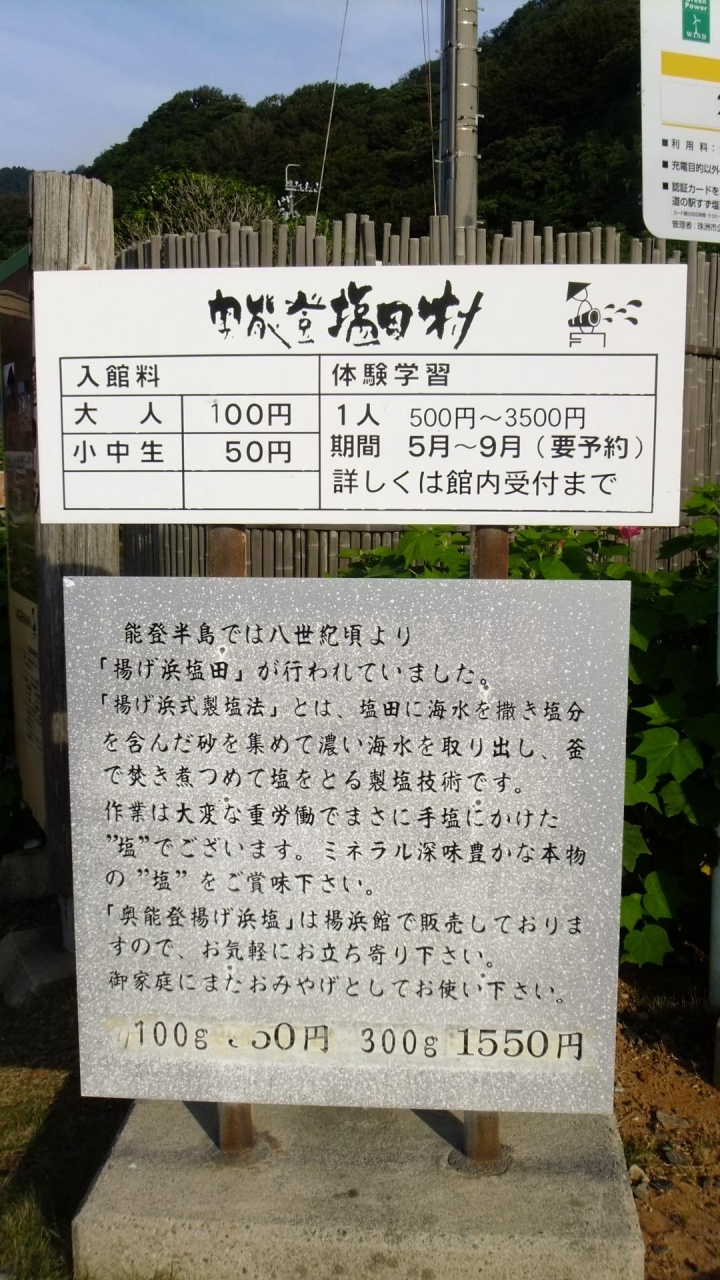 Green
Power
WIND
■利用料：
■充電目的以外
■認証カードを
道の駅すず塩
管理者：珠洲市
奥能登塩田村
入館料
体験学習
大人 100円
1人 500円～3500円
小中生 50円
期間 5月～9月（要予約）
詳しくは館内受付まで
能登半島では八世紀頃より
「揚げ浜塩田」が行われていました。
「揚げ浜式製塩法」とは、塩田に海水を撒き塩分
を含んだ砂を集めて濃い海水を取り出し、釜
で焚き煮つめて塩をとる製塩技術です。
作業は大変な重労働でまさに手塩にかけた
”塩”でございます。ミネラル深味豊かな本物
の”塩”をご賞味下さい。
「奥能登揚げ浜塩」は揚浜館で販売しておりま
すので、お気軽にお立ち寄り下さい。
御家庭にまたおみやげとしてお使い下さい。
100g 50円 300g 1550円